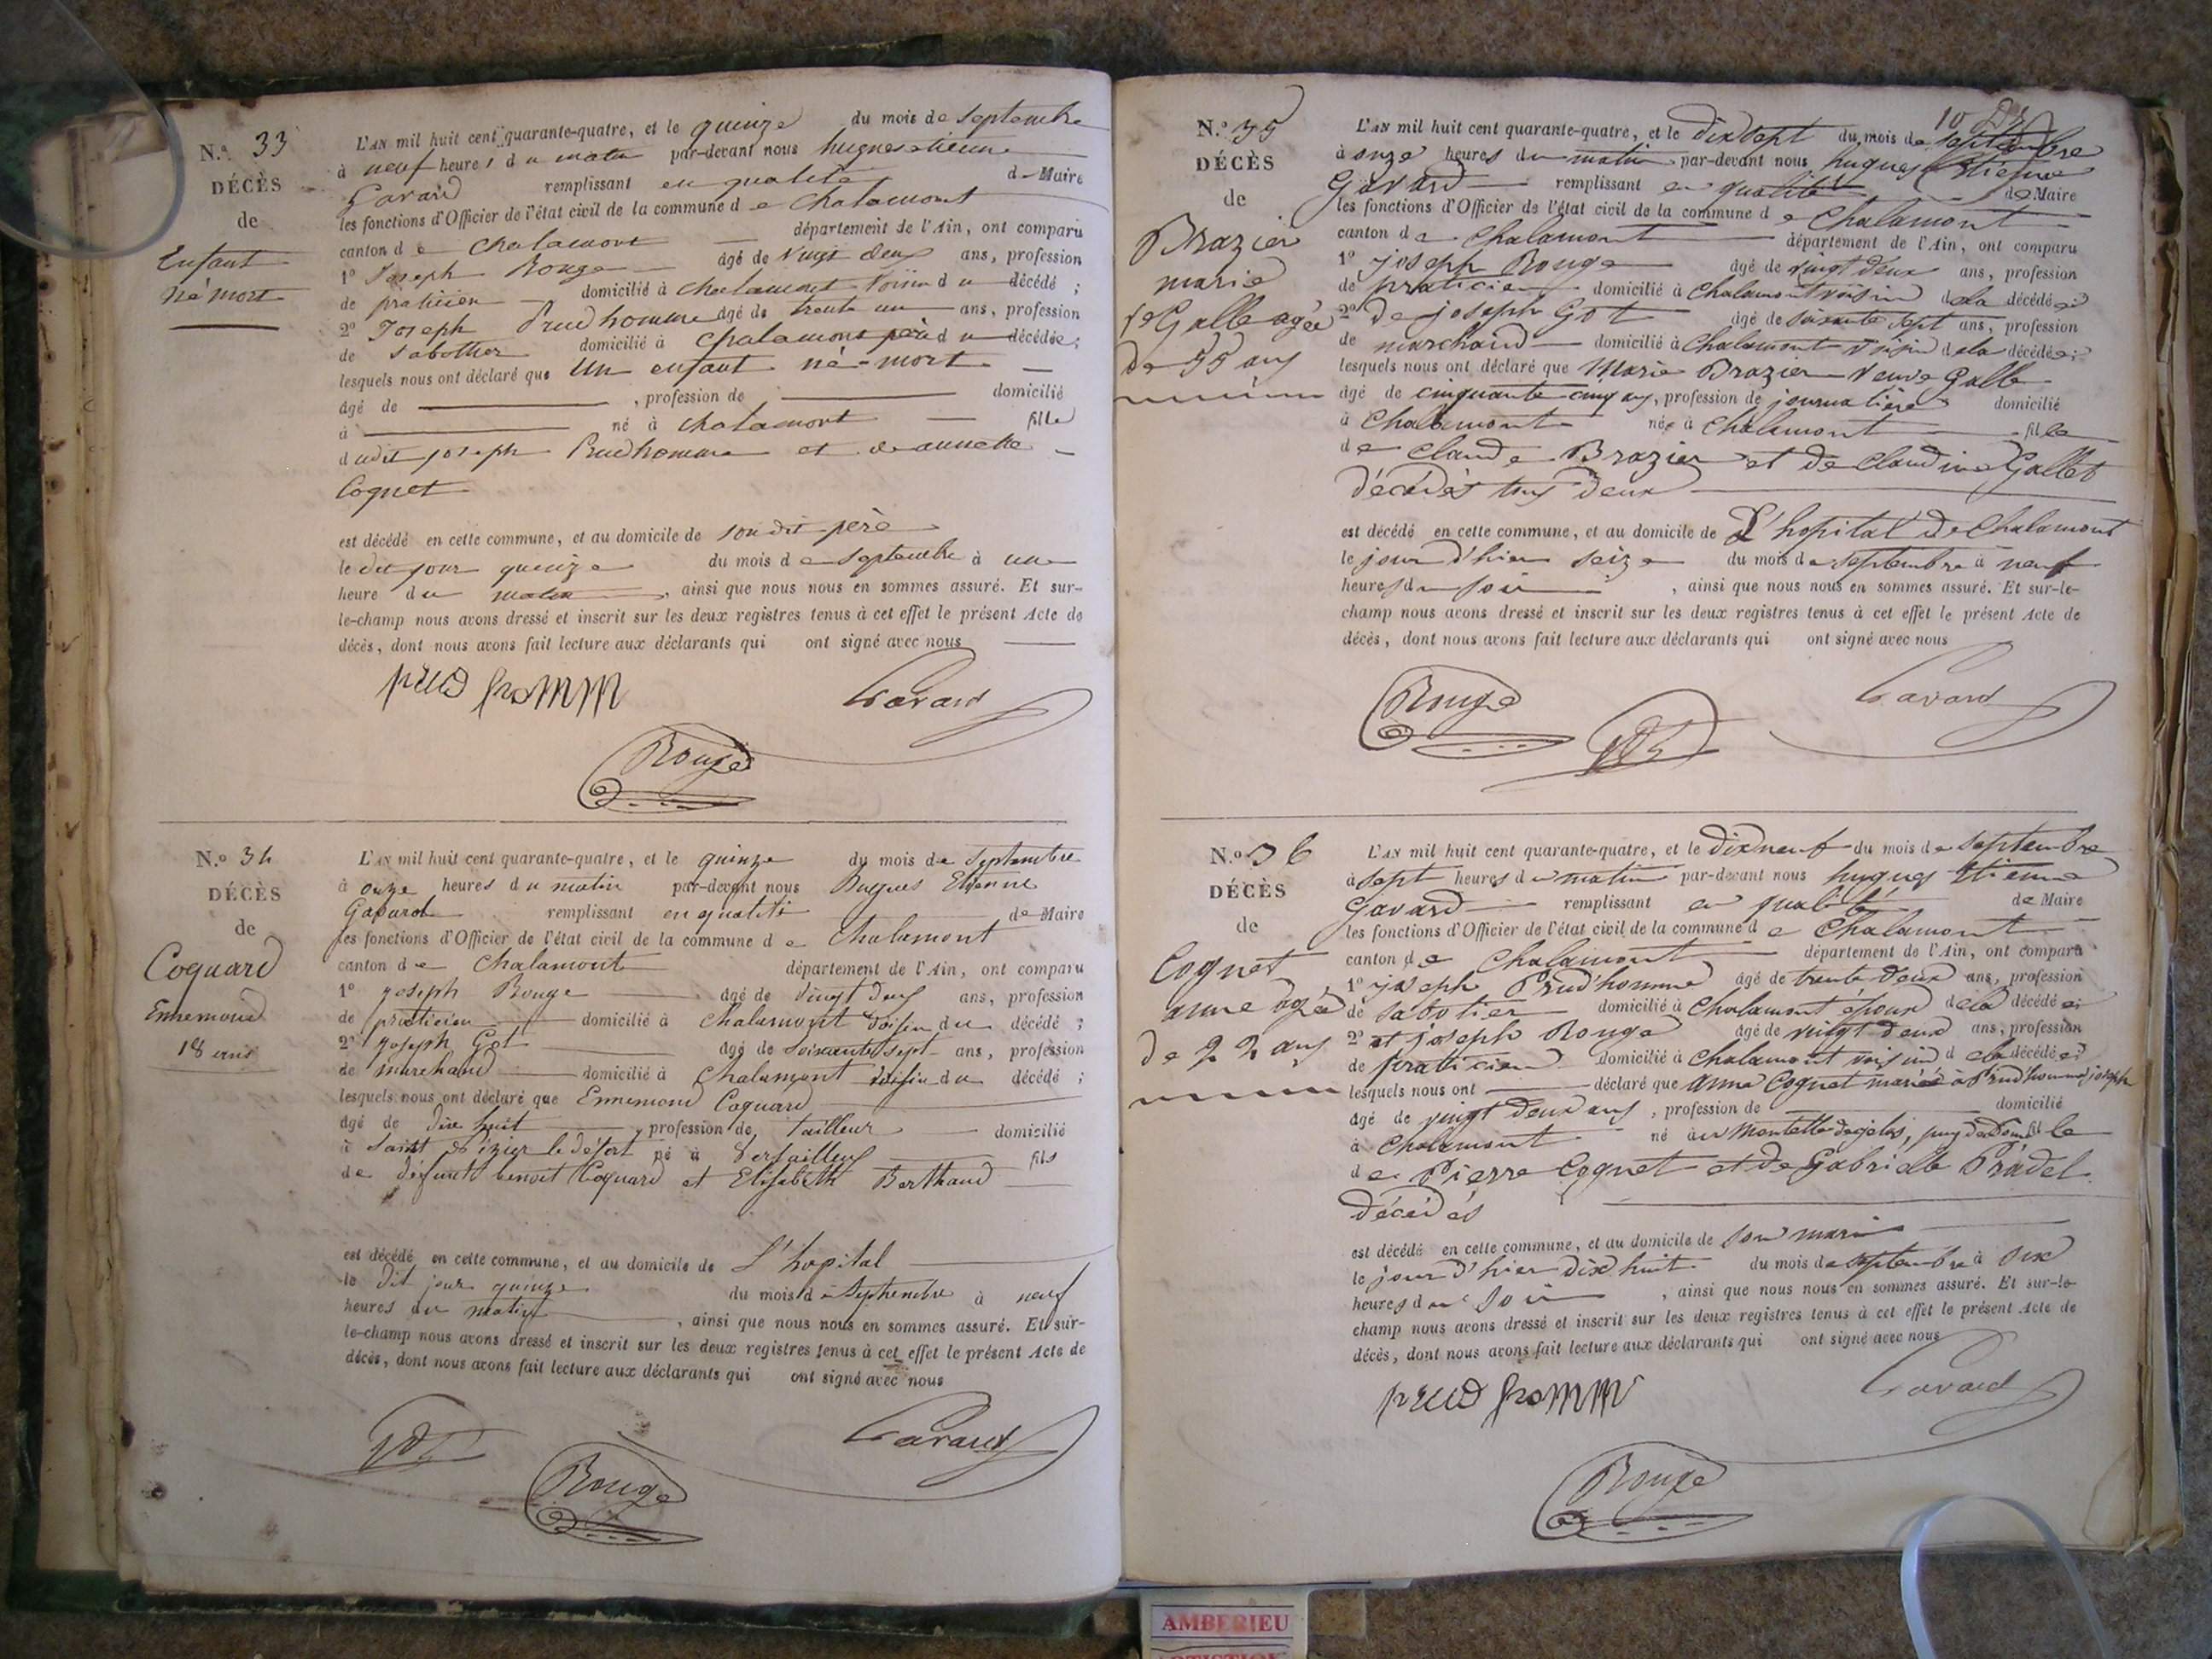 N.º 33
DÉCÈS
de
Enfant
né mort
L'AN mil huit cent quarante-quatre, et le quinze du mois de septembre
à neuf heures du matin par-devant nous hugues etienne
Gavard remplissant en qualité de Maire
les fonctions d'Officier de l'état civil de la commune de Chalamont
canton de Chalamont département de l'Ain, ont comparu
1º Joseph Rouge âgé de vingt deux ans, profession
de praticien domicilié à chalamont voisin du décédé ;
2º Joseph Prudhomme âgé de trente un ans, profession
de sabottier domicilié à chalamont père du décédé ;
lesquels nous ont déclaré que Un enfant né-mort
âgé de , profession de domicilié
à né à chalamont fille
dudit joseph Prudhomme et de annette
Cognet
est décédé en cette commune, et au domicile de son dit père
le dit jour quinze du mois de septembre à une
heure du matin , ainsi que nous nous en sommes assuré. Et sur-
le-champ nous avons dressé et inscrit sur les deux registres tenus à cet effet le présent Acte de
décès, dont nous avons fait lecture aux déclarants qui ont signé avec nous
prud homm Gavard
Rouge
N.º 34
DÉCÈS
de
Coquard
Ennemond
18 ans
L'AN mil huit cent quarante-quatre, et le quinze du mois de Septembre
à onze heures du matin par-devant nous Hugues Etienne
Gavard remplissant en qualité de Maire
les fonctions d'Officier de l'état civil de la commune de Chalamont
canton de Chalamont département de l'Ain, ont comparu
1º Joseph Rouge âgé de vingt deux ans, profession
de praticien domicilié à Chalamont voisin du décédé ;
2º Joseph Got âgé de soixante sept ans, profession
de marchand domicilié à Chalamont voisin du décédé ;
lesquels nous ont déclaré que Ennemond Coquard
âgé de dix huit , profession de tailleur domicilié
à Saint Nizier le désert né à Versailleux fils
de défunt benoit Coquard et Elisabeth Berthaud
est décédé en cette commune, et au domicile de L'hopital
le dit jour quinze du mois de Septembre à neuf
heures du matin , ainsi que nous nous en sommes assuré. Et sur-
le-champ nous avons dressé et inscrit sur les deux registres tenus à cet effet le présent Acte de
décès, dont nous avons fait lecture aux déclarants qui ont signé avec nous
Gavard
Rouge
N.º 35
DÉCÈS
de
Brazier
marie
ve Galle agée
de 55 ans
L'AN mil huit cent quarante-quatre, et le dix sept du mois de septembre
à onze heures du matin par-devant nous hugues Etienne
Gavard remplissant en qualité de Maire
les fonctions d'Officier de l'état civil de la commune de Chalamont
canton de Chalamont département de l'Ain, ont comparu
1º joseph Rouge âgé de vingt deux ans, profession
de praticien domicilié à Chalamont voisin dela décédée
2º de joseph Got âgé de soixante sept ans, profession
de marchand domicilié à Chalamont voisin dela décédée ;
lesquels nous ont déclaré que Marie Brazier veuve Galle
âgé de cinquante cinq ans, profession de journalière domicilié
à Chalamont née à Chalamont fille
de claude Brazier et de claudine Gallet
décédés tous deux
est décédé en cette commune, et au domicile de L'hopital de Chalamont
le jour d'hier seize du mois de septembre à neuf
heures du soir , ainsi que nous nous en sommes assuré. Et sur-le-
champ nous avons dressé et inscrit sur les deux registres tenus à cet effet le présent Acte de
décès, dont nous avons fait lecture aux déclarants qui ont signé avec nous
Rouge Gavard
N.º 36
DÉCÈS
de
Cognet
anne agée
de 22 ans
L'AN mil huit cent quarante-quatre, et le dix neuf du mois de septembre
à sept heures du matin par-devant nous hugues Etienne
Gavard remplissant en qualité de Maire
les fonctions d'Officier de l'état civil de la commune de Chalamont
canton de Chalamont département de l'Ain, ont comparu
1º joseph Prud'homme âgé de trente deux ans, profession
de sabotier domicilié à Chalamont epoux dela décédée
2º et joseph Rouge âgé de vingt deux ans, profession
de praticien domicilié à Chalamont voisin dela décédée
lesquels nous ont déclaré que anne Cognet mariée à Prud'homme joseph
âgé de vingt deux ans , profession de domicilié
à Chalamont né puy de Dôme fille
de Pierre Cognet et de Gabrielle Pradel
décédés
est décédé en cette commune, et au domicile de son mari
le jour d'hier dix huit du mois de septembre à dix
heures du soir , ainsi que nous nous en sommes assuré. Et sur-le-
champ nous avons dressé et inscrit sur les deux registres tenus à cet effet le présent Acte de
décès, dont nous avons fait lecture aux déclarants qui ont signé avec nous
prud homm Gavard
Rouge
AMBERIEU